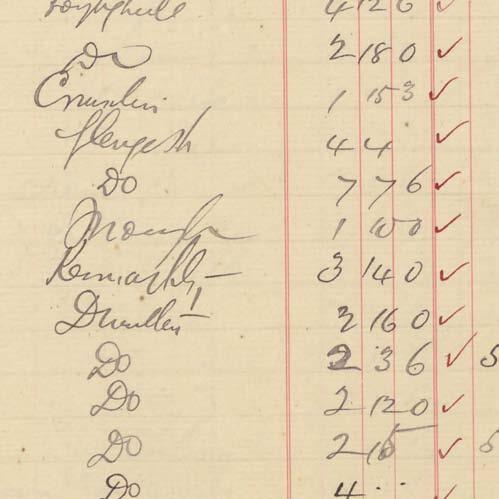 4 12 6 ✓
Do 2 18 0 ✓
Crumlin 1 15 3 ✓
Glengesh 4 4 ✓
Do 7 7 6 ✓
1 10 0 ✓
3 14 0 ✓
2 16 0 ✓
Do 2 3 6 ✓ 5
Do 2 12 0 ✓
Do 2 15 ✓ 5
Do 4 . . ✓